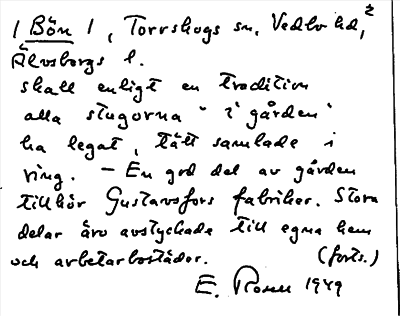 / Bön /, Torrskogs sn, Vedbo hd, 2
Älvsborgs l.
skall enligt en tradition
alla stugorna "i gården"
ha legat, tätt samlade i
ring. – En god del av gården
tillhör Gustavsfors fabriker. Stora
delar äro avstyckade till egna hem
och arbetarbostäder. (forts.)
E. Rosell 1949